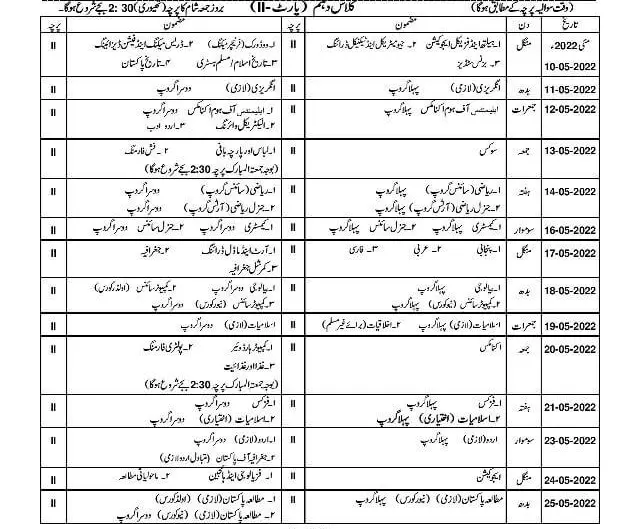 (وقت سوالیہ پرچہ کے مطابق ہوگا) کلاس دہم (پارٹ-II) بروز جمعہ شام کا پرچہ (تھیوری) 2:30 بجے شروع ہوگا۔
تاریخ دن مضمون پرچہ مضمون پرچہ
مئی 2022ء
10-05-2022 منگل ۱۔ہیلتھ اینڈ فزیکل ایجوکیشن ۲۔ جیومیٹریکل اینڈ ٹیکنیکل ڈرائنگ II ۱۔ووڈ ورک (فرنیچر میکنگ) ۲۔ ڈریس میکنگ اینڈ فیشن ڈیزائننگ II
۳۔ بزنس سٹڈیز ۳۔تاریخ اسلام/مسلم ہسٹری ۴۔تاریخ پاکستان
11-05-2022 بدھ انگریزی (لازمی) پہلا گروپ II انگریزی (لازمی) دوسرا گروپ II
12-05-2022 جمعرات ایلیمنٹس آف ہوم اکنامکس پہلا گروپ II ۱۔ ایلیمنٹس آف ہوم اکنامکس دوسرا گروپ II
۲۔ الیکٹریکل وائرنگ ۳۔ اردو ادب
13-05-2022 جمعہ سوکس II ۱۔لباس اور پارچہ بافی ۲۔ فش فارمنگ II
(بوجہ جمعۃ المبارک پرچہ 2:30 بجے شروع ہوگا)
14-05-2022 ہفتہ ۱۔ریاضی (سائنس گروپ) پہلا گروپ II ۱۔ریاضی (سائنس گروپ) دوسرا گروپ II
۲۔جنرل ریاضی (آرٹس گروپ) پہلا گروپ ۲۔جنرل ریاضی (آرٹس گروپ) دوسرا گروپ
16-05-2022 سوموار ۱۔کیمسٹری پہلا گروپ ۲۔ جنرل سائنس پہلا گروپ II ۱۔کیمسٹری دوسرا گروپ ۲۔ جنرل سائنس دوسرا گروپ II
17-05-2022 منگل ۱۔پنجابی ۲۔ عربی ۳۔ فارسی II ۱۔آرٹ اینڈ ماڈل ڈرائنگ ۲۔جغرافیہ II
۳۔کمرشل جغرافیہ
18-05-2022 بدھ ۱۔بیالوجی پہلا گروپ II ۱۔بیالوجی دوسرا گروپ ۲۔کمپیوٹر سائنس (اولڈ کورس) II
۲۔کمپیوٹر سائنس (نیو کورس) پہلا گروپ ۳۔کمپیوٹر سائنس (نیو کورس) دوسرا گروپ
19-05-2022 جمعرات اسلامیات (لازمی) پہلا گروپ ۲۔اخلاقیات (برائے غیر مسلم) II اسلامیات (لازمی) دوسرا گروپ II
20-05-2022 جمعہ اکنامکس II ۱۔کمپیوٹر ہارڈ ویئر ۲۔ پولٹری فارمنگ II
۳۔ غذا اور غذائیت
(بوجہ جمعۃ المبارک پرچہ 2:30 بجے شروع ہوگا)
21-05-2022 ہفتہ ۱۔فزکس پہلا گروپ II ۱۔فزکس دوسرا گروپ II
۲۔اسلامیات (اختیاری) پہلا گروپ ۲۔ اسلامیات (اختیاری) دوسرا گروپ
23-05-2022 سوموار اردو (لازمی) پہلا گروپ II ۱۔اردو (لازمی) دوسرا گروپ II
۲۔جغرافیہ آف پاکستان (متبادل اردو لازمی)
24-05-2022 منگل ایجوکیشن II ۱۔ فزیالوجی اینڈ ہائجین ۲۔ ماحولیاتی مطالعہ II
25-05-2022 بدھ مطالعہ پاکستان (لازمی) (نیو کورس) پہلا گروپ II ۱۔ مطالعہ پاکستان (لازمی) (اولڈ کورس) II
۲۔ مطالعہ پاکستان (لازمی) (نیو کورس) دوسرا گروپ